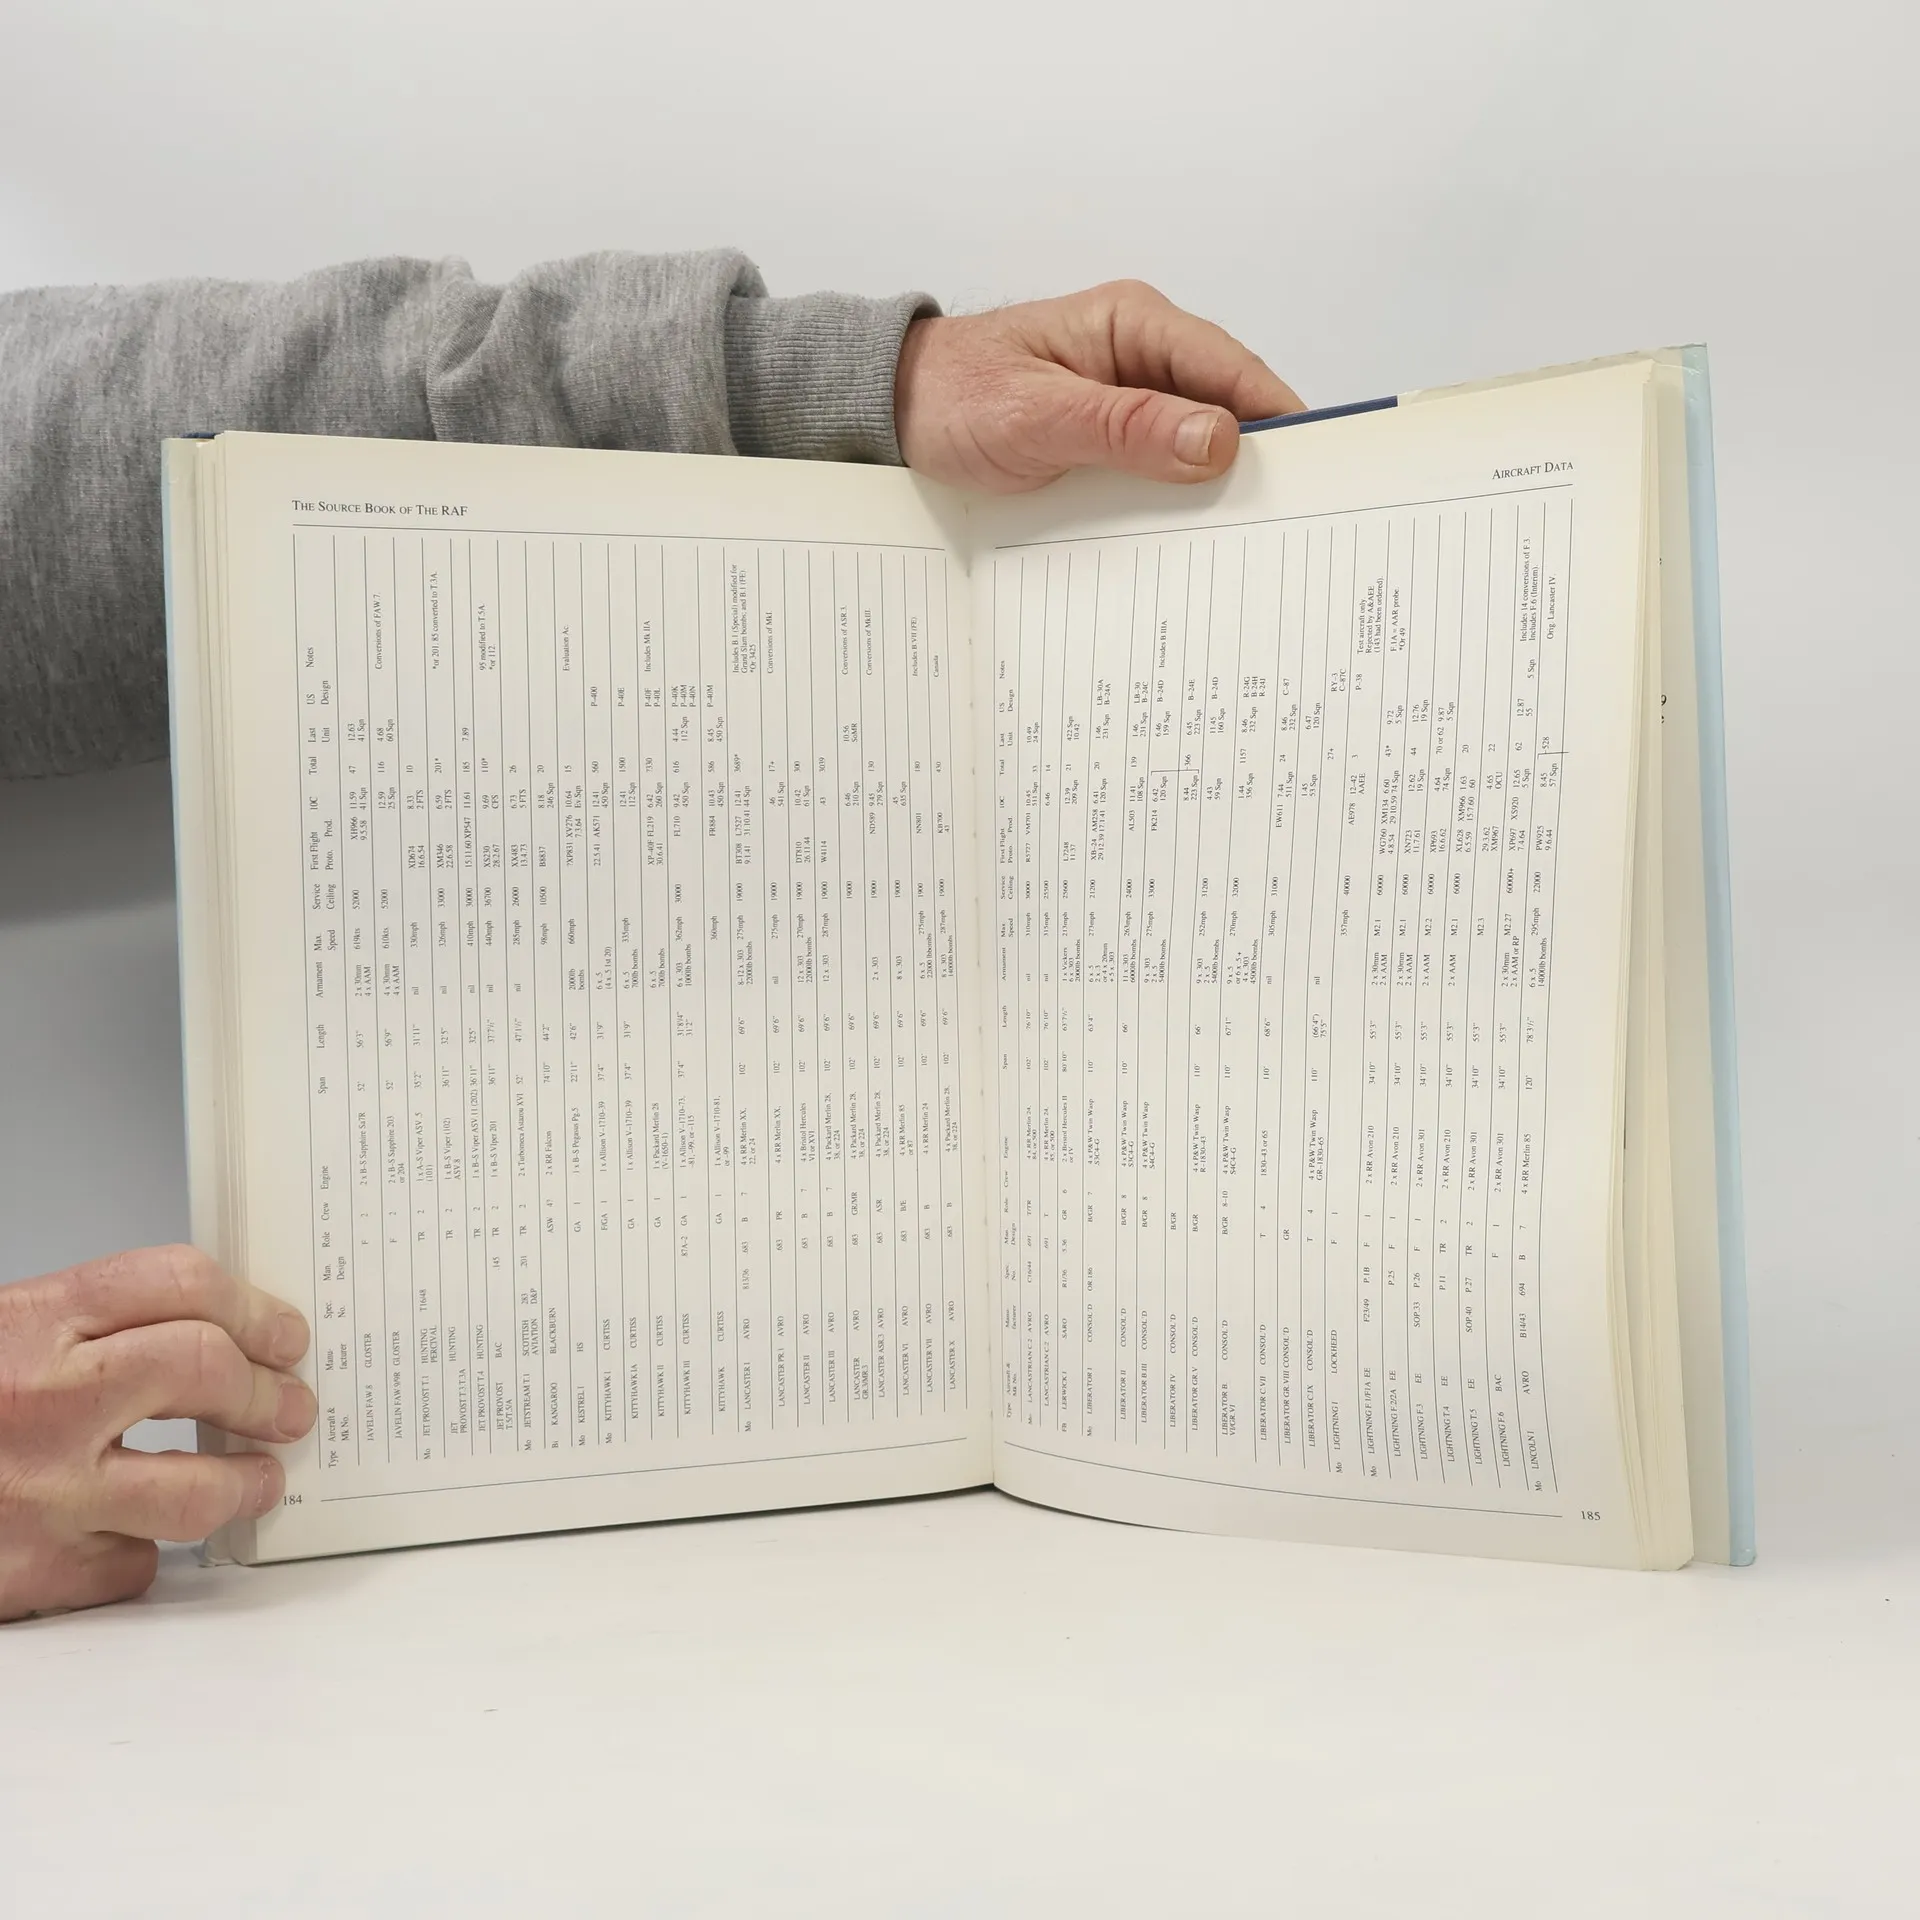 THE SOURCE BOOK OF THE RAF
Type Aircraft & Mk No. Manu-facturer Spec. No. Man. Design Role Crew Engine Span Length Armament Max. Speed Service Ceiling First Flight Proto. Prod. IOC Total Last Unit US Design Notes
JAVELIN FAW.8 GLOSTER F 2 2 x B-S Sapphire Sa7R 52' 56'3" 2 x 30mm 4 x AAM 619kts 52000 XH966 9.5.58 11.59 41 Sqn 47 12.63 41 Sqn
JAVELIN FAW.9/9R GLOSTER F 2 2 x B-S Sapphire 203 or 204 52' 56'9" 4 x 30mm 4 x AAM 610kts 52000 12.59 25 Sqn 116 4.68 60 Sqn Conversions of FAW.7.
Mo JET PROVOST T.1 HUNTING PERCIVAL T16/48 TR 2 1 x A-S Viper ASV.5 (101) 35'2" 31'11" nil 330mph XD674 16.6.54 8.33 2 FTS 10
JET PROVOST T.3 T.3A HUNTING TR 2 1 x B-S Viper (102) ASV.8 36'11" 32'5" nil 326mph 33000 XM346 22.6.58 6.59 2 FTS 201* *or 201. 85 converted to T.3A.
JET PROVOST T.4 HUNTING TR 2 1 x B-S Viper ASV.11 (202) 36'11" 32'5" nil 410mph 30000 15.11.60 XP547 11.61 185 7.89
JET PROVOST T.5/T.5A BAC 145 TR 2 1 x B-S Viper 201 36'11" 37'7½" nil 440mph 36700 XS230 28.2.67 9.69 CFS 110* 95 modified to T.5A. *or 112.
Mo JETSTREAM T.1 SCOTTISH AVIATION 283 D&P 201 TR 2 2 x Turbomeca Astazou XVI 52' 47'1½" nil 285mph 26000 XX483 13.4.73 6.73 5 FTS 26
Bi KANGAROO BLACKBURN ASW 4? 2 x RR Falcon 74'10" 44'2" 98mph 10500 B8837 8.18 246 Sqn 20
Mo KESTREL I HS GA 1 1 x B-S Pegasus Pg.5 22'11" 42'6" 2000lb bombs 660mph ?XP831 XV276 7.3.64 10.64 Ev.Sqn 15 Evaluation Ac.
Mo KITTYHAWK I CURTISS F/GA 1 1 x Allison V-1710-39 37'4" 31'9" 6 x .5 (4 x .5 1st 20) 22.5.41 AK571 12.41 450 Sqn 560 P-400
KITTYHAWK IA CURTISS GA 1 1 x Allison V-1710-39 37'4" 31'9" 6 x .5 700lb bombs 335mph 12.41 112 Sqn 1500 P-40E
KITTYHAWK II CURTISS GA 1 1 x Packard Merlin 28 (V-1650-1) 6 x .5 700lb bombs XP-40F FL219 30.6.41 6.42 260 Sqn ?330 P-40F P-40L Includes Mk IIA
KITTYHAWK III CURTISS 87A-2 GA 1 1 x Allison V-1710-73, -81, -99, or -115 37'4" 31'8¾" 31'2" 6 x .303 1000lb bombs 362mph 30000 FL710 9.42 450 Sqn 616 4.44 112 Sqn P-40K P-40M P-40N
KITTYHAWK CURTISS GA 1 1 x Allison V-1710-81, or -99 360mph FR884 10.43 450 Sqn 586 8.45 450 Sqn P-40M
Mo LANCASTER I AVRO B13/36 683 B 7 4 x RR Merlin XX, 22, or 24 102' 69'6" 8-12 x .303 22000lb bombs 275mph 19000 BT308 9.1.41 L7527 31.10.41 12.41 44 Sqn 3689* Includes B.1 (Special) modified for Grand Slam bombs; and B.1 (FE). *Or 3425
LANCASTER PR.1 AVRO 683 PR 4 x RR Merlin XX, 102' 69'6" nil 275mph 19000 46 541 Sqn 17+ Conversions of MkI.
LANCASTER II AVRO 683 B 7 4 x Bristol Hercules VI or XVI 102' 69'6" 12 x .303 22000lb bombs 270mph 19000 DT810 26.11.44 10.42 61 Sqn 300
LANCASTER III AVRO 683 B 7 4 x Packard Merlin 28, 38, or 224 102' 69'6" 12 x .303 287mph 19000 W4114 43 3039
LANCASTER GR.3/MR.3 AVRO 683 GR/MR 4 x Packard Merlin 28, 38, or 224 102' 69'6" 19000 6.46 210 Sqn 10.56 SoMR Conversions of ASR.3.
LANCASTER ASR.3 AVRO 683 ASR 4 x Packard Merlin 28, 38, or 224 102' 69'6" 2 x .303 19000 ND589 9.45 279 Sqn 130 Conversions of MkIII.
LANCASTER VI AVRO 683 B/E 4 x RR Merlin 85 or 87 102' 69'6" 8 x .303 19000 45 635 Sqn
LANCASTER VII AVRO 683 B 4 x RR Merlin 24 102' 69'6" 6 x .5 22000 lbbombs 275mph 1900 NN801 180 Includes B.VII (FE)
LANCASTER X AVRO 683 B 4 x Packard Merlin 28, 38, or 224 102' 69'6" 8 x .303 14000lb bombs 287mph 19000 KB700 43 430 Canada
184
AIRCRAFT DATA
Type Aircraft & Mk No. Manu-facturer Spec. No Man. Design Role Crew Engine Span Length Armament Max Speed Service Ceiling First Flight Proto. Prod. IOC Total Last Unit US Design Notes
Mo LANCASTRIAN C.2 AVRO C16/44 691 T/TR 4 x RR Merlin 24, 85, or 500 102' 76'10" nil 310mph 30000 R5727 VM701 10.45 511 Sqn 33 10.49 24 Sqn
LANCASTRIAN C.2 AVRO 691 T 4 x RR Merlin 24, 85, or 500 102' 76'10" nil 315mph 25500 6.46 14
FB LERWICK I SARO R1/36 S.36 GR 6 2 x Bristol Hercules II or IV 80'10" 63'7½" 1 x Vickers 6 x .303 2000lb bombs 213mph 25600 L7248 11.37 12.39 209 Sqn 21 422 Sqn 10.42
Mo LIBERATOR I CONSOL'D OR.186 B/GR 7 4 x P&W Twin Wasp S3C4-G 110' 63'4" 6 x .5 2 x .3 or 4 x 20mm + 5 x .303 273mph 21200 XB-24 AM258 29.12.39 17.1.41 6.41 120 Sqn 20 1.46 231 Sqn LB-30A B-24A
LIBERATOR II CONSOL'D B/GR 8 4 x P&W Twin Wasp S3C4-G 110' 66' 11 x .303 6000lb bombs 263mph 24000 AL503 11.41 108 Sqn 139 1.46 231 Sqn LB-30 B-24C
LIBERATOR B.III CONSOL'D B/GR 8 4 x P&W Twin Wasp S4C4-G 9 x .303 2 x .5 5400lb bombs 275mph 33000 FK214 6.42 120 Sqn 6.46 159 Sqn B-24D Includes B.IIIA.
LIBERATOR IV CONSOL'D B/GR
LIBERATOR GR.V CONSOL'D B/GR 4 x P&W Twin Wasp R-1830-43 110' 66' 9 x .303 2 x .5 5400lb bombs 252mph 31200 8.44 223 Sqn 366 6.45 223 Sqn B-24E
4.43 59 Sqn 11.45 160 Sqn B-24D
LIBERATOR B VI/GR.VI CONSOL'D B/GR 8-10 4 x P&W Twin Wasp S4C4-G 110' 67'1" 9 x .5 or 6 x .5 + 4 x .303 4500lb bombs 270mph 32000 1.44 356 Sqn 1157 8.46 232 Sqn B-24G B-24H B-24J
LIBERATOR C.VII CONSOL'D T 4 1830-43 or 65 110' 68'6" nil 305mph 31000 EW611 7.44 511 Sqn 24 8.46 232 Sqn C-87
LIBERATOR GR.VIII CONSOL'D GR 1.45 53 Sqn 6.47 120 Sqn
LIBERATOR C.IX CONSOL'D T 4 4 x P&W Twin Wasp GR-1830-65 110' (66'4") 75'5" nil 27+ RY-3 C-87C
Mo LIGHTNING I LOCKHEED F 1 357mph 40000 AE978 12-42 AAEE 3 P-38 Test aircraft only Rejected by A&AEE (143 had been ordered).
Mo LIGHTNING F.1/F1A EE F23/49 P.1B F 1 2 x RR Avon 210 34'10" 55'3" 2 x 30mm 2 x AAM M2.1 60000 WG760 4.8.54 XM134 29.10.59 6.60 74 Sqn 43* 9.72 5 Sqn F.1A = AAR probe. *Or 49
LIGHTNING F.2/2A EE P.25 F 1 2 x RR Avon 210 34'10" 55'3" 2 x 30mm 2 x AAM M2.1 60000 XN723 11.7.61 12.62 19 Sqn 44 12.76 19 Sqn
LIGHTNING F.3 EE SOP.33 P.26 F 1 2 x RR Avon 301 34'10" 55'3" 2 x AAM M2.2 60000 XP693 16.6.62 4.64 74 Sqn 70 or 62 9.87 5 Sqn
LIGHTNING T.4 EE P.11 TR 2 2 x RR Avon 210 34'10" 55'3" 2 x AAM M2.1 60000 XL628 6.5.59 XM966 15.7.60 1.63 60 20
LIGHTNING T.5 EE SOP.40 P.27 TR 2 2 x RR Avon 301 34'10" 55'3" M2.3 29.3.62 XM967 4.65 OCU 22
LIGHTNING F.6 BAC F 1 2 x RR Avon 301 34'10" 55'3" 2 x 30mm 2 x AAM or RP M2.27 60000+ XP697 7.4.64 XS920 12.65 5 Sqn 62 12.87 55 5 Sqn Includes 14 conversions of F.3. Includes F.6 (Interim).
Mo LINCOLN I AVRO B14/43 694 B 7 4 x RR Merlin 85 120' 78'3½" 6 x .5 14000lb bombs 295mph 22000 PW925 9.6.44 8.45 57 Sqn 528 Orig. Lancaster IV.
185